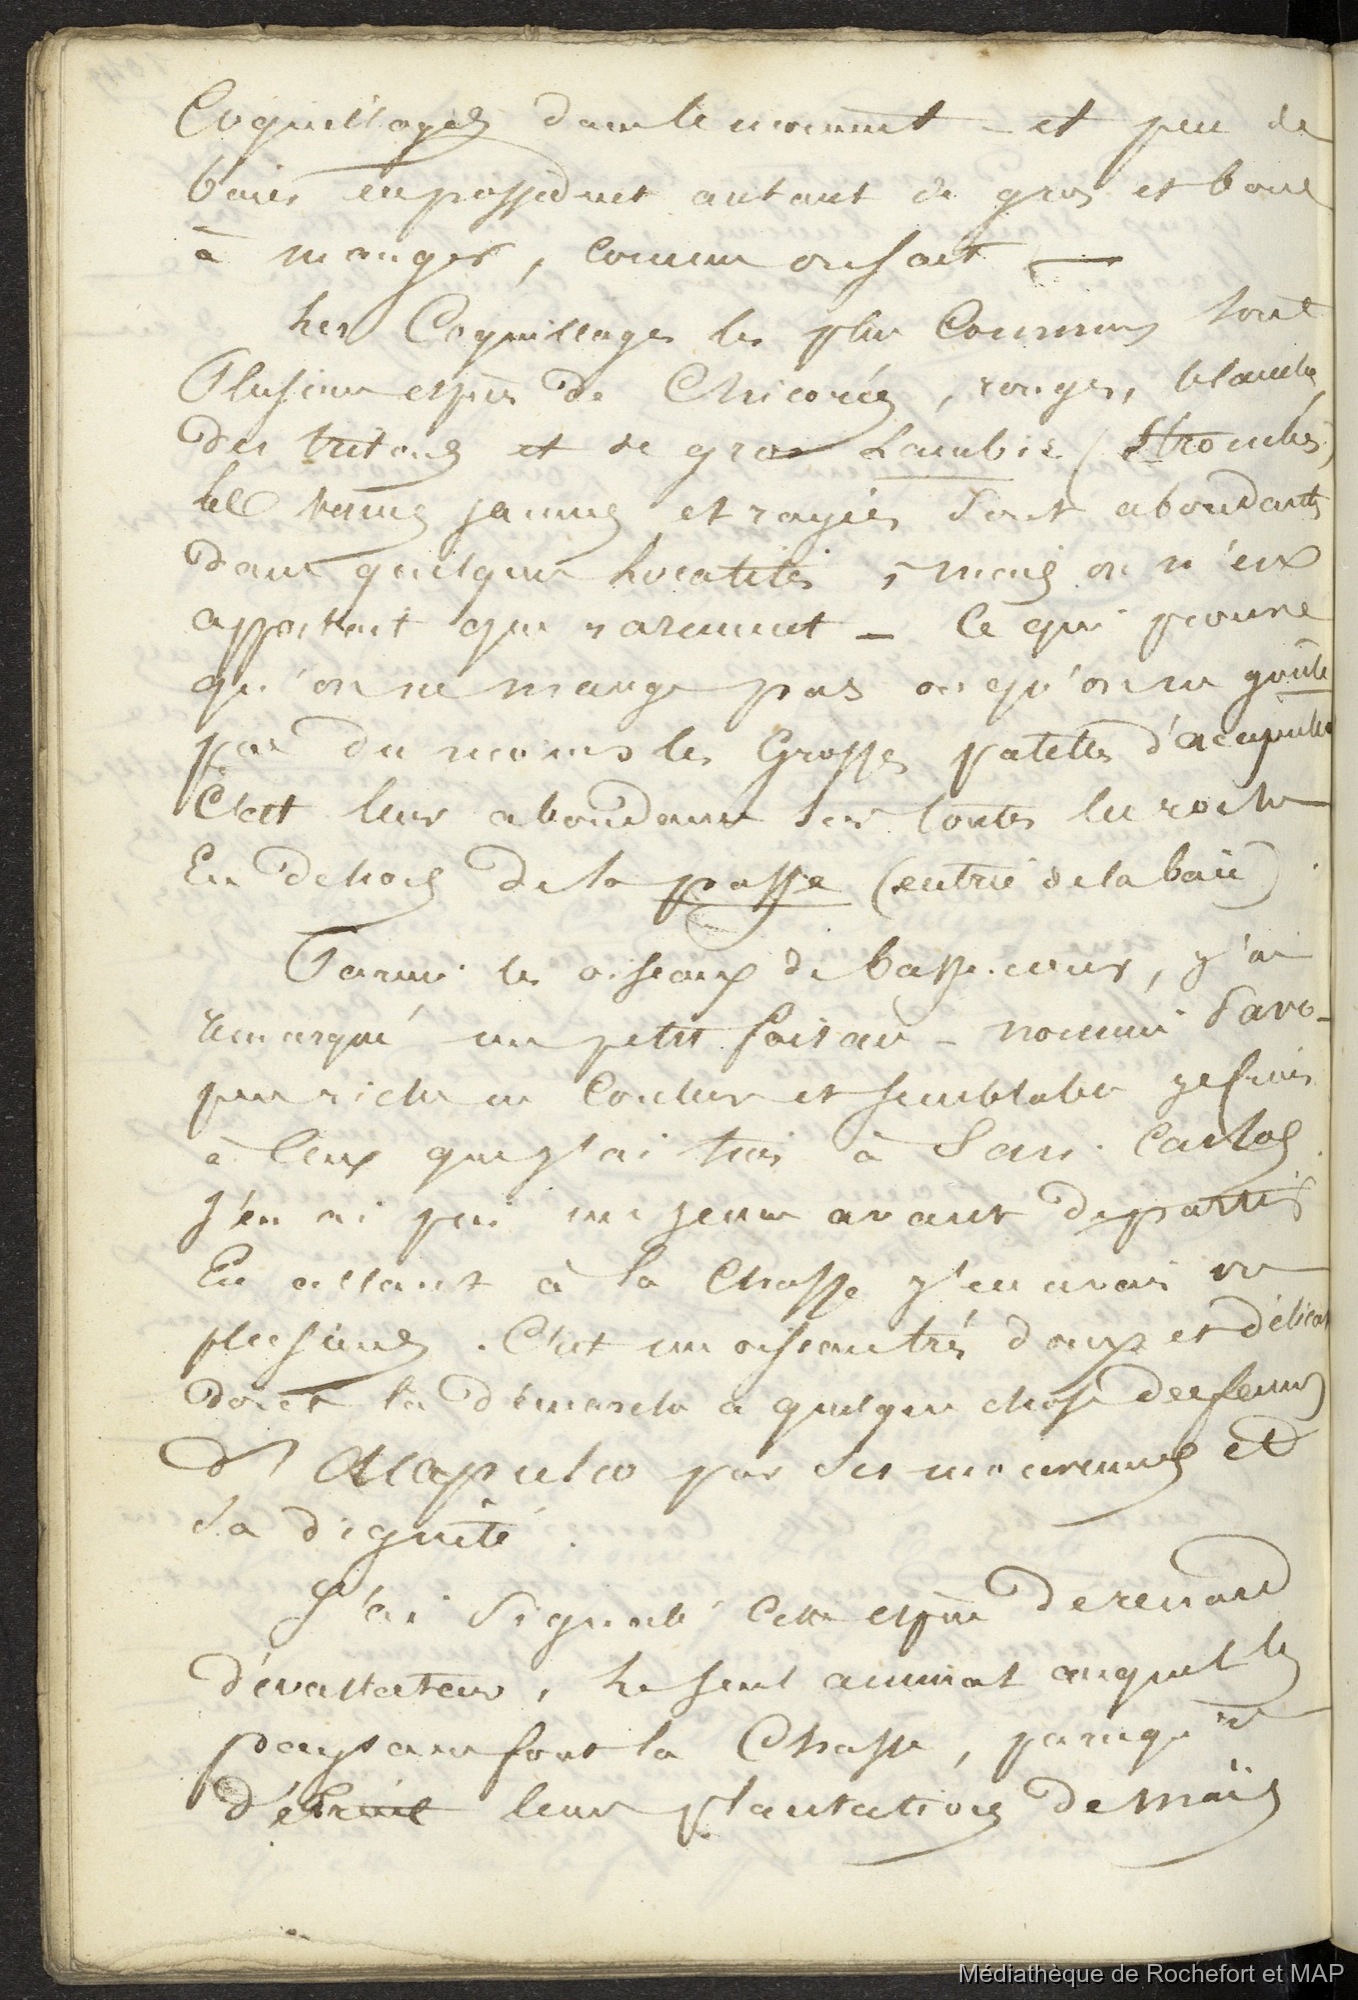 Coquillages dans le moment - et peu de
baies en possèdent autant de gros et bons
à manger, comme on sait —
Les Coquillages les plus Communs sont
Plusieurs espèces de Chicorées, rouges, blanches,
des tritons et de gros Lambis (Strombes)
les venus jaunes et rayées sont abondants
dans quelques Localités, mais on n'en
apportait que rarement - Ce qui prouve
qu'on ne mange pas ou qu'on ne goûte
pas du moins les Grosses patelles d'acapulco
C'est leur abondance sur toutes les roches
En dehors de la passe (entrée de la baie).
Parmi les oiseaux de basse-cour, j'ai
remarqué un petit faisan - nommé Pavo-
peu riche en Couleur et semblable je crois
à Ceux que j'ai vus à San-Carlos.
J'en ai pris un jeune avant de partir
En allant à la Chasse j'en avais vu
plusieurs. C'est un oiseau très doux et délicat
dont la démarche a quelque chose des femmes
d'Acapulco par ses mouvemens et
sa dignité.
J'ai Signalé Cette espèce de renard
dévastateur, Le seul animal auquel les
paysans font la Chasse, parcequ'il
détruit leurs plantations de maïs
Médiathèque de Rochefort et MAP